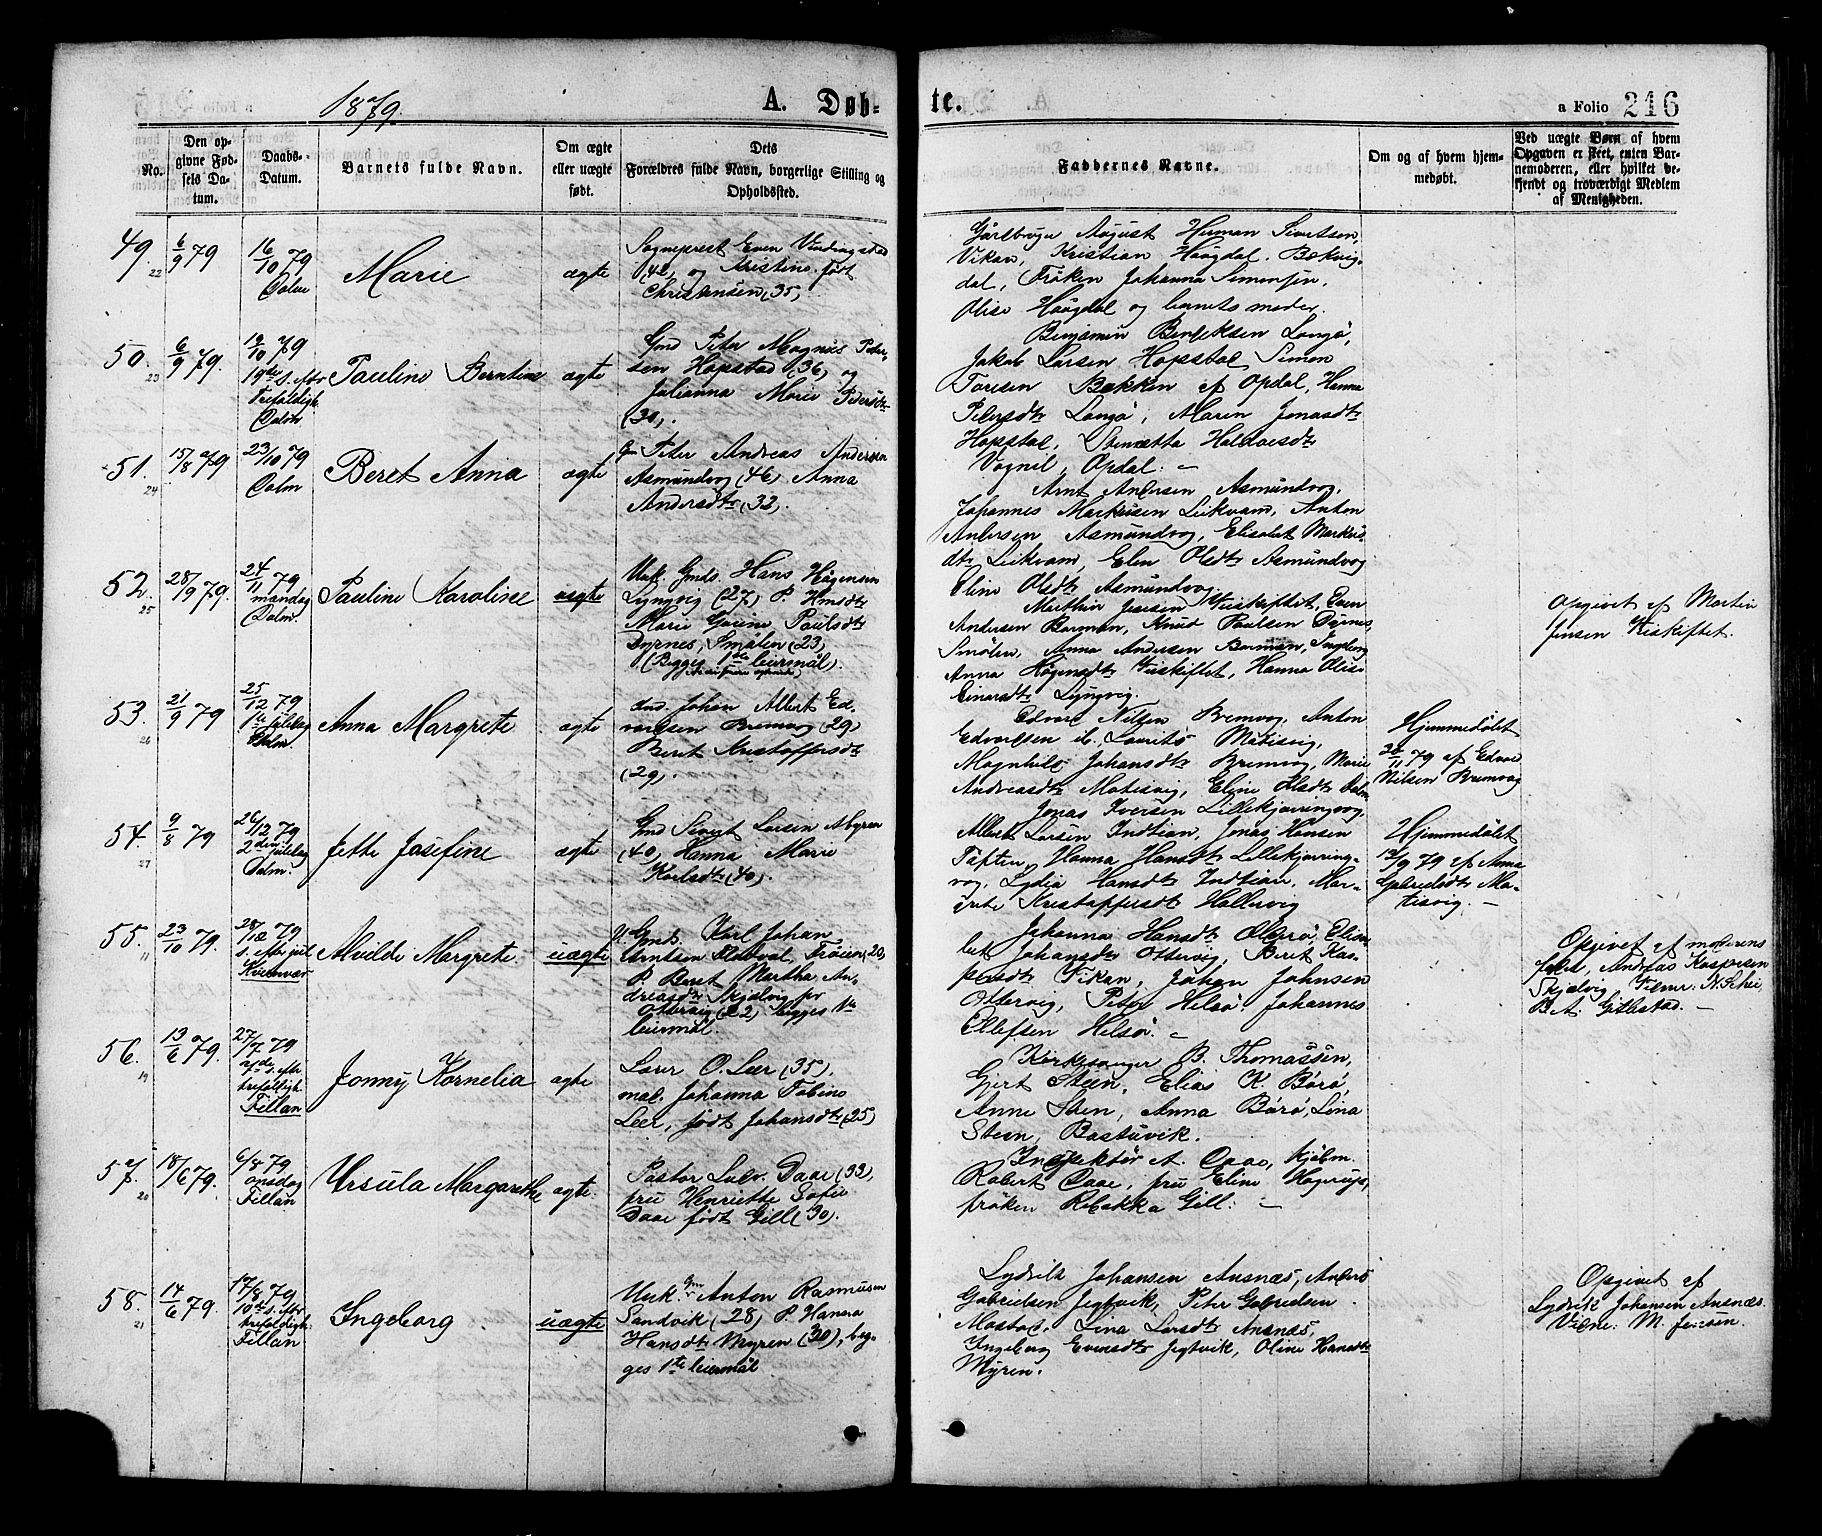 1879.
A. Døb-
te.
a Folio 216
No.
Den op-
givne Fød-
sels Da-
tum.
Daabs-
Datum.
Barnets fulde Navn.
Om ægte
eller uægte
født.
Dets
Forældres fulde Navn, borgerlige Stilling og
Opholdssted.
Faddernes Navne.
Om og af hvem hjem-
medøbt.
Ved uægte Børn af hvem
Opgaven er skeet, enten Bar-
nemoderen, eller hvilket be-
kjendt og troværdigt Medlem
af Menigheden.
49.
22
6/9 79
16/10 79
Dolm
Marie
ægte
Sogneprest Even
(42) og Kristine født
Christensen (35)
August Herman Sivertsen,
Vikan, Kristian Haugdal. Bekvig-
dal, Frøken Johanna Simonsen,
Olise Haugdal og barnets moder.
50.
23
6/9 79.
19/10 79
19de s. eftr
trefoldigh.
Dolm
Pauline Berntine
ægte
Gmd Peter Magnus Peter-
sen Hopstad (36) og
Johanna Marie Pedersdtr
(30).
Benjamin Bentsen Langø,
Jakob Larsen Hopstad Simon
Toresen Bakken af Opdal, Hanna
Petersdtr Langø, Maren Jonasdtr
Hopstad, Halvorsdtr
Vognil, Opdal. —
51.
24
15/8 79
23/10 79
Dolm
Beret Anna
ægte
Gm Peter Andreas Andersen
Asmundvog (46) Anna
Andersdtr (32).
Arnt Andersen Asmundvog,
Johannes Markusen Leikvam, Anton
Andersen Asmundvog, Elisabet Markus-
dtr Leikvam, Elen Olsdtr Asmundvog
Eline Olsdtr Asmundvog
52.
25
28/9 79.
24/11 79
mandag
Dolm.
Pauline Karoline
uægte
Unk. Gmds. Hans Hågensen
Lyngvig (27) P. Hmsdtr
Marie Gurine Paulsdtr
Dyrnes, Smølen (23)
(Begges 1ste leiermål).
Marthin Jensen Kiskiftet, Even
Andersen Borman, Knud Paulsen Dyrnes,
Smølen, Anna Andersen Borman, Ingeborg
Anna Hågensdtr Kiskiftet, Hanna Olise
Einarsdtr Lyngvig.
Opgivet af Martin
Jensen Kiskiftet.
53.
26
21/9 79
25/12 79
1ste juledag
Dolm.
Anna Margrete
ægte
Ind. Johan Albert Ed-
vardsen Bremvog (29)
Beret Kristoffersdtr
(29).
Edvard Nilsen Bremvog, Anton
Edvardsen ib., Laurits Matisvig,
Magnhild Johansdtr Bremvog, Marie
Andreasdtr Matisvig, Eline Olsdtr Dolm
Hjemmedøbt
79 af Edvard
Nilsen Bremvog
54.
27
9/8 79
26/12 79
2den juledag
Dolm.
Jette Josefine
ægte
Gmd Sivert Larsen Myren
(40) Hanna Marie
Karlsdtr (40).
Jonas Iversen Lillekjøringvog,
Albert Larsen Indtian, Jonas Hansen
Tuften, Hanna Hansdtr Lillekjøring-
vog, Lydia Hansdtr Indtian, Mar-
grete Kristoffersdtr Hallervig
Hjemmedøbt
12/9 79 af Anna
Gabrielsdtr Ma-
tisvig. —
55.
11
23/10 79.
28/12 79
s. efter jul
Kvenvær
Alvilde Margrete
uægte
Gmds. Karl Johan
Arntsen Flatval, Frøien (20)
P. Beret Martha An-
dreasdtr Skjølvig pr
Ottervig (22) begges 1ste
leiermål.
Johanna Hansdtr Olersø, Elisa-
bet Johansdtr Ottervig, Berit Kas-
persdtr Fikan, Johan Johnsen
Ottervig, Peter Helsø. Johannes
Ellefsen Helsø. —
Opgivet af moderens
fader, Andreas Kaspersen
Skjølvig
56.
19
13/6 79.
27/7 79
7de s. eftr
trefoldigh.
Fillan
Jonny Kornelia
ægte
Lærer O. Leer (35).
mad. Johanna Tobine
Leer, født Johansdtr (25)
Kirkesanger B. Thomassen,
Gjert Steen, Elias K. Børø,
Anne Steen, Anna Børø, Lina
Steen, Bastuvik.
57.
20
18/6 79.
6/8 79
onsdag
Fillan
Ursula Margarethe
ægte.
Pastor Ludv. Daae (33)
fru Henriette Sofie
Daae født Gill (30).
Inspektør A. Daae, kjøbm.
Robert Daae, fru Eline Hagerup,
frøken Rebekka Gill. —
58.
21
14/6 79.
17/8 79
10de s. eftr
trefoldigh.
Fillan
Ingeborg
uægte
Unk. Gm Anton Rasmussen
Sandvik (28) P. Hanna
Hansdtr Myren (30), beg-
ges 1ste leiermål
Lydrik Johansen Ansnæs, Anders
Gabrielsen Jegtvik, Peter Gabrielsen
Mastad, Lina Larsdtr Ansnæs,
Ingeborg Evensdtr Jegtvik, Oline Hansdtr
Myren.
Opgivet af
Lydrik Johansen Ansnæs.
Vidne: M. Jensen.